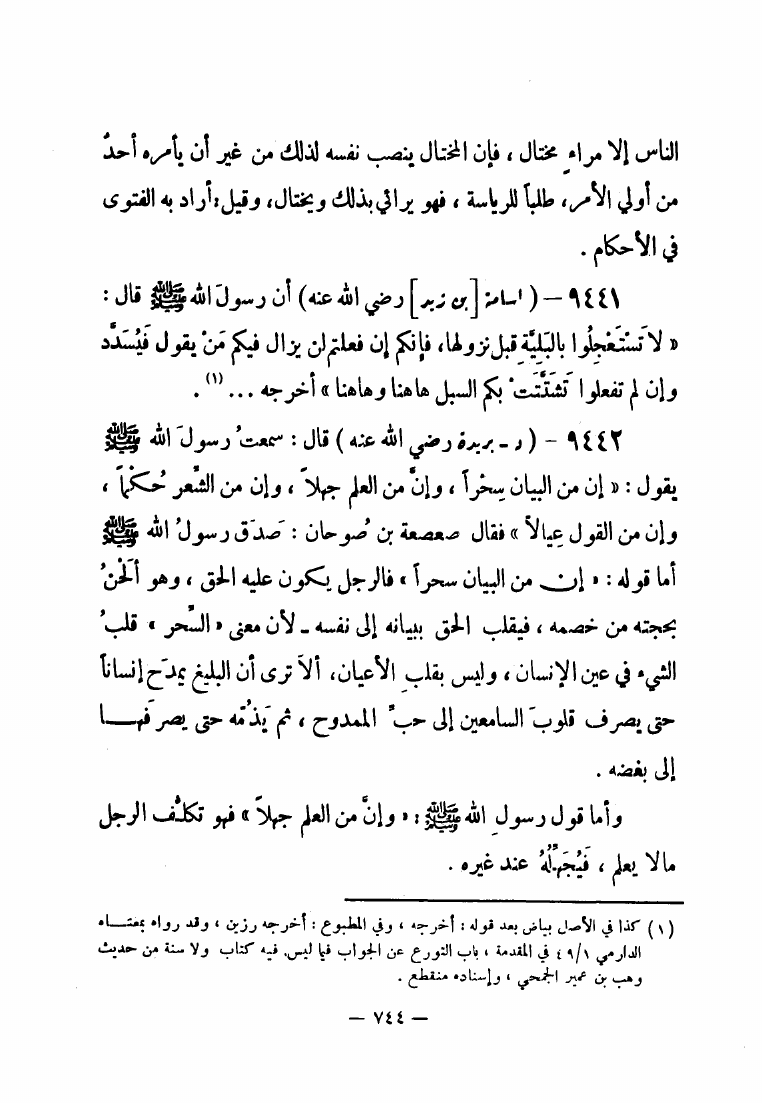 الناس إلا مراءٍ مختال ، فإن المختال ينصب نفسه لذلك من غير أن يأمره أحدٌ
من أولي الأمر، طلباً للرياسة ، فهو يرائي بذلك ويختال، وقيل:أراد به الفتوى
في الأحكام .
٩٤٤١ – ( اسامة [بن زيد] رضي الله عنه) أن رسولَ الله ﷺ قال :
« لا تَسْتَعْجِلُوا بالبَلِيَّةِ قبل نزولها، فإنكم إن فعلتم لن يزال فيكم مَنْ يقول فَيُسَدَّد
وإن لم تفعلوا تَشَتَّتَتْ بكم السبل هاهنا وهاهنا » أخرجه ... (١) .
٩٤٤٢ - ( د - بريدة رضي الله عنه ) قال : سمعتُ رسولَ الله ﷺ
يقول : « إن من البيان سِحْراً ، وإنَّ من العلم جهلاً ، وإن من الشِّعر حُكْماً ،
وإن من القول عِيالاً » فقال صعصعة بن صُوحان : صَدَقَ رسولُ الله ﷺ
أما قوله : « إن من البيان سحراً » فالرجل يكون عليه الحق ، وهو ألْحَنُ
بحجته من خصمه ، فيقلب الحق ببيانه إلى نفسه - لأن معنى « السِّحر » قلبُ
الشيء في عين الإنسان ، وليس بقلبِ الأعيان، ألاَ ترى أن البليغ يمدَح إنساناً
حتى يصرف قلوبَ السامعين إلى حبِّ الممدوح ، ثم يَذُمّه حتى يصرفَها
إلى بغضه .
وأما قول رسولِ الله ﷺ : « وإنَّ من العلم جهلاً » فهو تكلُّف الرجل
مالا يعلم ، فَيُجَهِّلُهُ عند غيره .
(١) كذا في الأصل بياض بعد قوله : أخرجه ، وفي المطبوع : أخرجه رزين ، وقد رواه بمعناه
الدارمي ٤٩/١ في المقدمة ، باب التورع عن الجواب فيما ليس فيه كتاب ولا سنة من حديث
وهب بن عمير الجمحي ، وإسناده منقطع .
– ٧٤٤ –